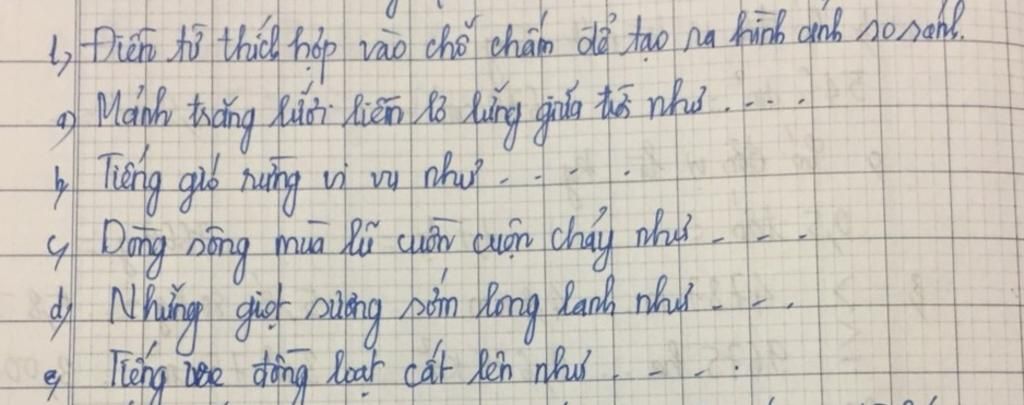 1, Điền từ thích hợp vào chỗ chấm để tạo ra hình ảnh so sánh.
a) Mảnh trăng lưỡi liềm lơ lửng giữa trời như....
b, Tiếng gió rừng vi vu như.....
c, Dòng sông mùa lũ cuồn cuộn chảy như....
d, Những giọt sương sớm long lanh như....
e, Tiếng ve đồng loạt cất lên như.....